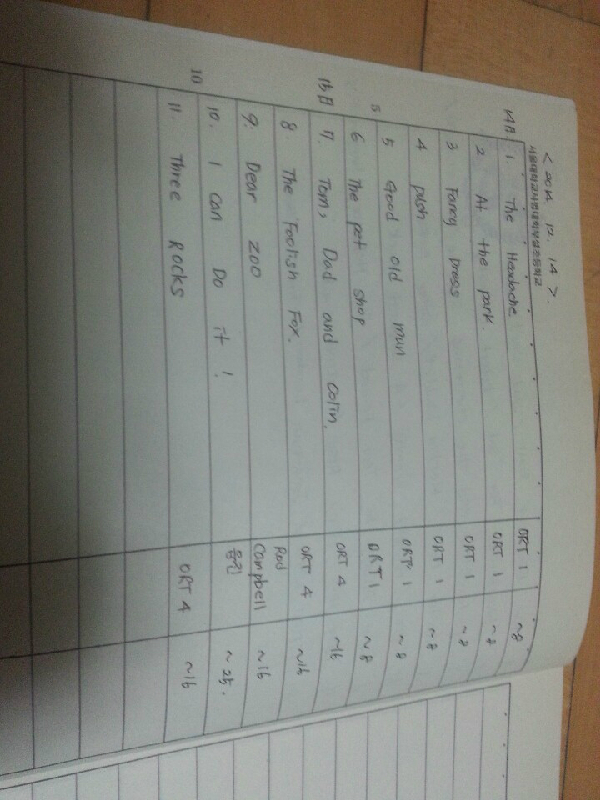 < 2014. 12. 14 >
서울대학교사범대학부설초등학교
14일 1. The Headache ORT 1 ~8
2 At the park ORT 1 ~8
3 Fancy Dress ORT 1 ~8
4 push ORT 1 ~8
5 Good old mun ORT 1 ~8
6 The pet shop ORT 1 ~8
15일 7. Tom, Dad and Colin. ORT 4 ~16
8. The Foolish Fox. ORT 4 ~16
9. Dear zoo Rod Campbell ~16
10. I can Do it! 웅진 ~25.
11. Three Rocks ORT 4 ~16